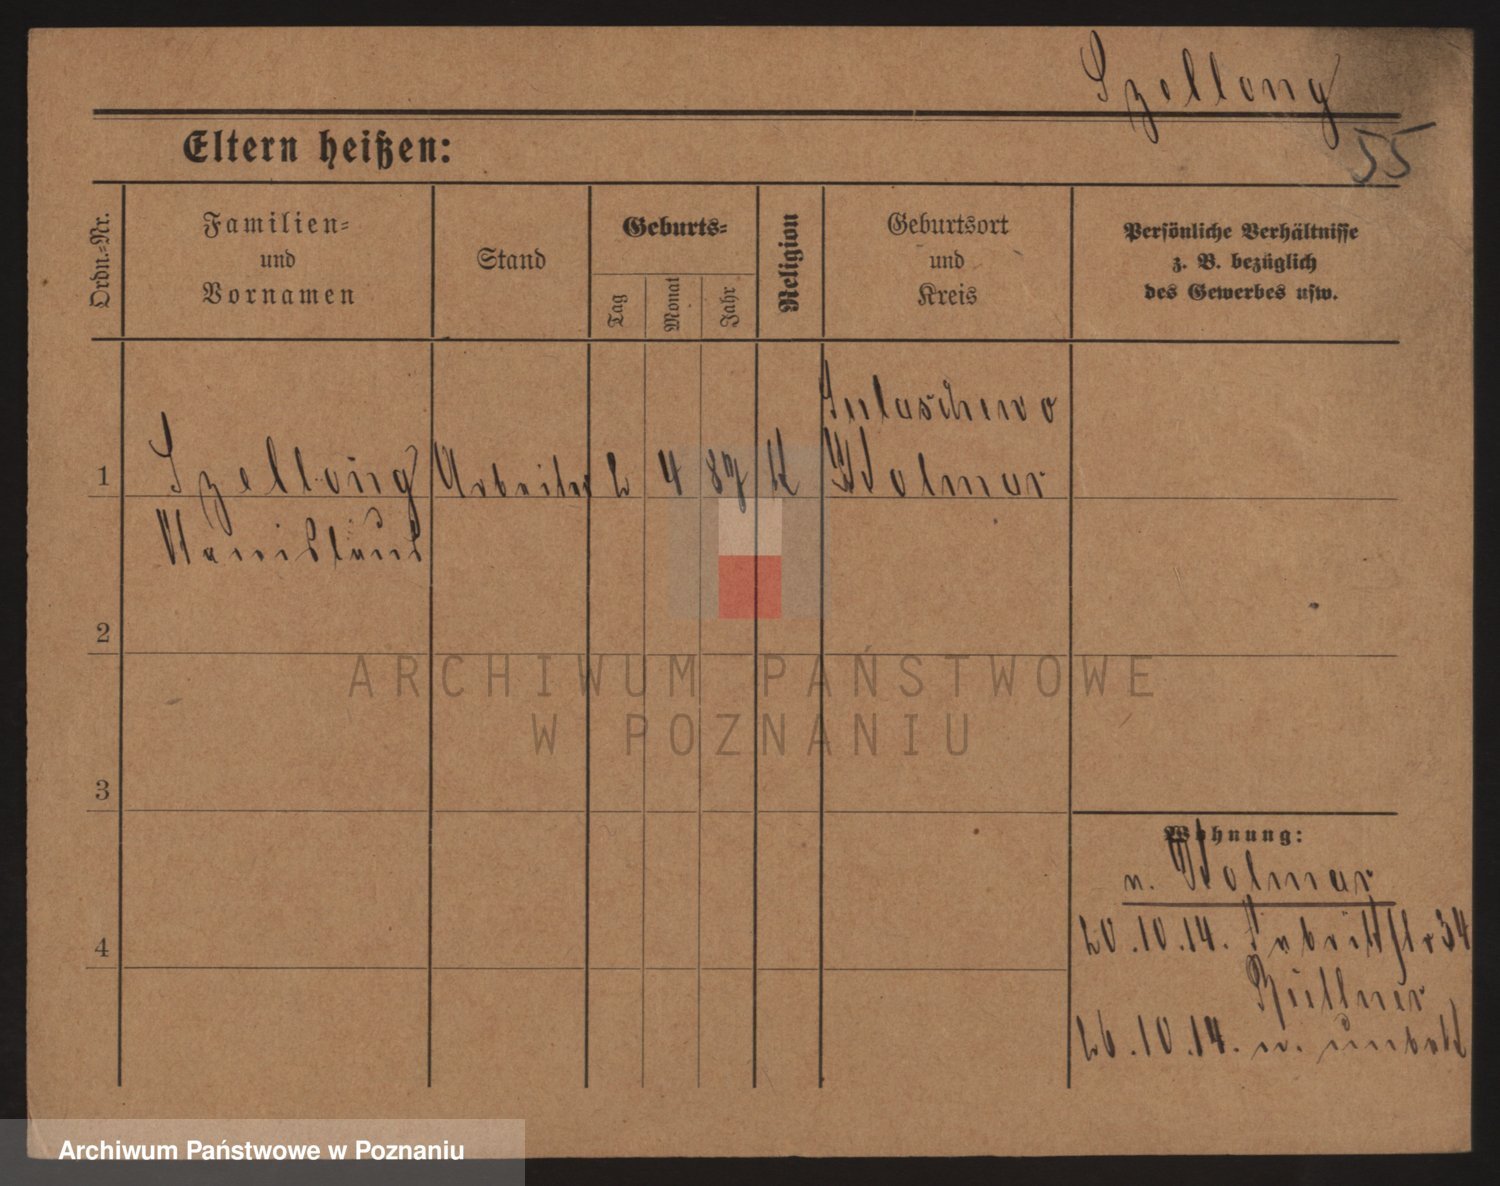 Szellong
55
Eltern heißen:
Ordn.-Nr.
Familien-
und
Vornamen
Stand
Geburts-
Tag
Monat
Jahr
Religion
Geburtsort
und
Kreis
Persönliche Verhältnisse
z. B. bezüglich
des Gewerbes usw.
1
Szellong Arbeiter 2 4 87 K
Wolmar
2
3
4
Wohnung:
n. Wolmar
20.10.14. 34
26.10.14. n. unbek
ARCHIWUM PAŃSTWOWE
W POZNANIU
Archiwum Państwowe w Poznaniu